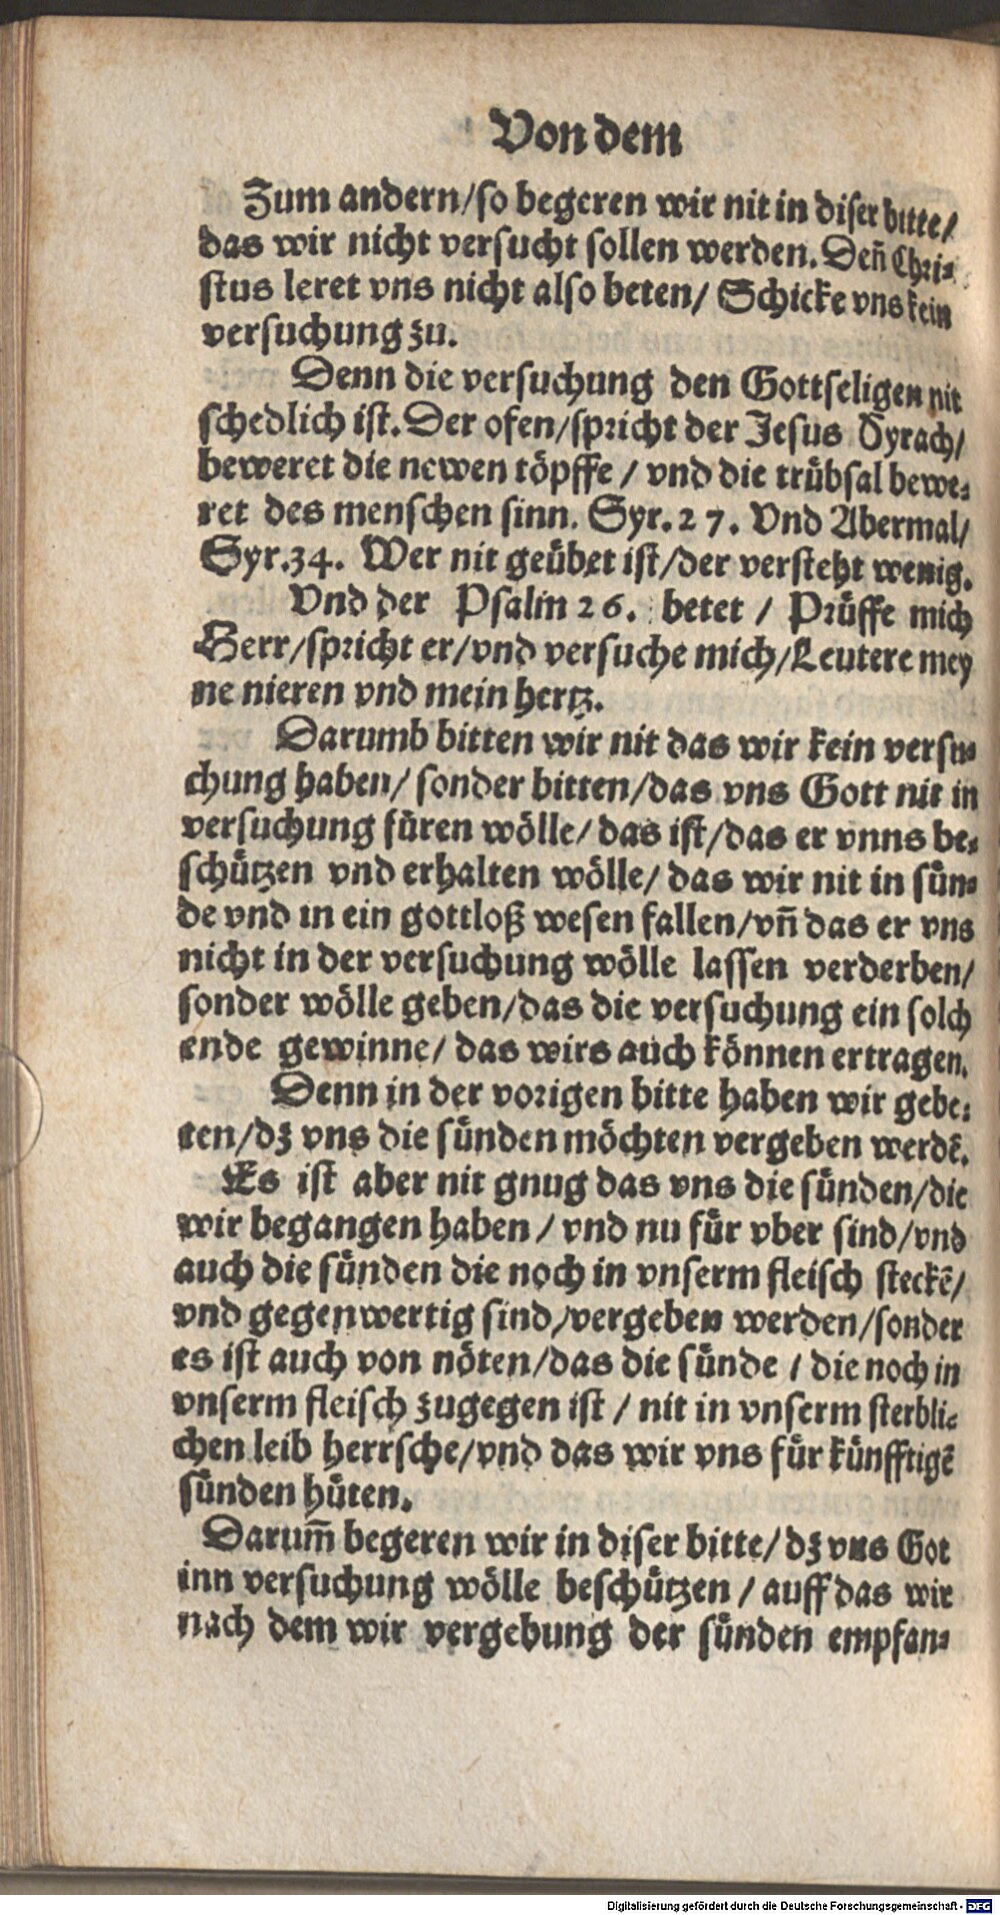 Von dem
Zum andern/so begeren wir nit in diser bitte/
das wir nicht versucht sollen werden. Deñ Chri⸗
stus leret vns nicht also beten/ Schicke vns kein
versuchung zu.
Denn die versuchung den Gottseligen nit
schedlich ist. Der ofen/spricht der Jesus Syrach/
beweret die newen töpffe / vnd die trübsal bewe⸗
ret des menschen sinn. Syr. 27. Vnd Abermal/
Syr.34. Wer nit geübet ist/der versteht wenig.
Vnd der Psalm 26. betet / Prüffe mich
Herr/spricht er/vnd versuche mich/Leutere mey
ne nieren vnd mein hertz.
Darumb bitten wir nit das wir kein versu⸗
chung haben/ sonder bitten/das vns Gott nit in
versuchung füren wölle/ das ist/das er vnns be⸗
schützen vnd erhalten wölle/ das wir nit in sün⸗
de vnd in ein gottloß wesen fallen/vñ das er vns
nicht in der versuchung wölle lassen verderben/
sonder wölle geben/das die versuchung ein solch
ende gewinne/ das wirs auch können ertragen.
Denn in der vorigen bitte haben wir gebe⸗
ten/dz vns die sünden möchten vergeben werdē.
Es ist aber nit gnug das vns die sünden/die
wir begangen haben / vnd nu für vber sind/vnd
auch die sünden die noch in vnserm fleisch steckē/
vnd gegenwertig sind/vergeben werden/sonder
es ist auch von nöten/das die sünde / die noch in
vnserm fleisch zugegen ist / nit in vnserm sterbli⸗
chen leib herrsche/vnd das wir vns für künfftigē
sünden hüten.
Darum̃ begeren wir in diser bitte/ dz vns Got
inn versuchung wölle beschützen / auff das wir
nach dem wir vergebung der sünden empfan⸗
Digitalisierung gefördert durch die Deutsche Forschungsgemeinschaft - DFG